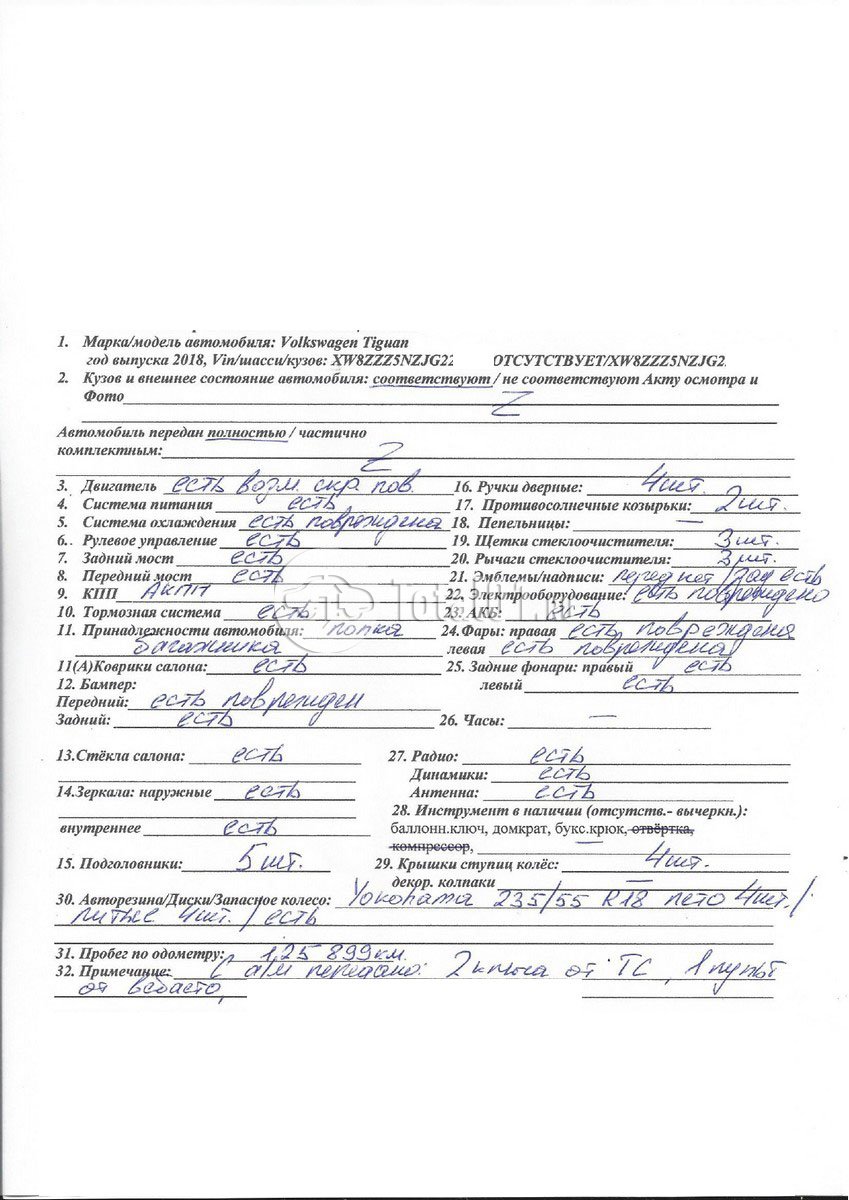 1. Марка/модель автомобиля: Volkswagen Tiguan
год выпуска 2018, Vin/шасси/кузов: XW8ZZZ5NZJG22 ОТСУТСТВУЕТ/XW8ZZZ5NZJG2
2. Кузов и внешнее состояние автомобиля: соответствуют / не соответствуют Акту осмотра и
Фото Z
Автомобиль передан полностью / частично
комплектным: Z
3. Двигатель есть возм. скр. пов.
4. Система питания есть
5. Система охлаждения есть повреждена
6.. Рулевое управление есть
7. Задний мост есть
8. Передний мост есть
9. КПП АКПП
10. Тормозная система есть
11. Принадлежности автомобиля: полка
багажника
11(А)Коврики салона: есть
12. Бампер:
Передний: есть поврежден
Задний: есть
16. Ручки дверные: 4шт.
17. Противосолнечные козырьки: 2шт.
18. Пепельницы: —
19. Щетки стеклоочистителя: 3шт.
20. Рычаги стеклоочистителя: 3шт.
21. Эмблемы/надписи: перед нет / зад есть
22. Электрооборудование: есть повреждено
23. АКБ: есть
24.Фары: правая есть повреждена
левая есть повреждена
25. Задние фонари: правый есть
левый есть
26. Часы: —
13.Стёкла салона: есть
14.Зеркала: наружные есть
внутреннее есть
15. Подголовники: 5шт.
27. Радио: есть
Динамики: есть
Антенна: есть
28. Инструмент в наличии (отсутств.- вычеркн.):
баллонн.ключ, домкрат, букс.крюк, отвёртка,
компрессор, —
29. Крышки ступиц колёс: 4шт.
декор. колпаки —
30. Авторезина/Диски/Запасное колесо: Yokohama 235/55 R18 лето 4шт. /
литые 4шт. / есть
31. Пробег по одометру: 125 899км.
32. Примечание: С а/м передано: 2 ключа от ТС, 1 пульт
от вебасто,